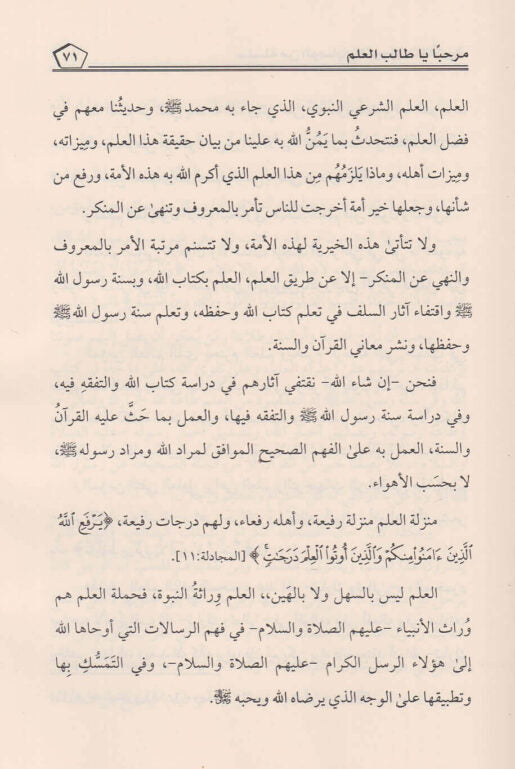 مرحبًا يا طالب العلم
٧١
العلم، العلم الشرعي النبوي، الذي جاء به محمد ﷺ، وحديثُنا معهم في
فضل العلم، فنتحدثُ بما يَمُنُّ الله به علينا من بيان حقيقة هذا العلم، ومِيزاته،
ومِيزات أهله، وماذا يلزَمُهُم مِن هذا العلم الذي أكرم الله به هذه الأمة، ورفع من
شأنها، وجعلها خير أمة أخرجت للناس تأمر بالمعروف وتنهىٰ عن المنكر.
ولا تتأتىٰ هذه الخيرية لهذه الأمة، ولا تتسنم مرتبة الأمر بالمعروف
والنهي عن المنكر– إلا عن طريق العلم، العلم بكتاب الله، وبسنة رسول الله
ﷺ واقتفاء آثار السلف في تعلم كتاب الله وحفظه، وتعلم سنة رسول الله ﷺ
وحفظها، ونشر معاني القرآن والسنة.
فنحن –إن شاء الله– نقتفي آثارهم في دراسة كتاب الله والتفقه فيه،
وفي دراسة سنة رسول الله ﷺ والتفقه فيها، والعمل بما حَثَّ عليه القرآنُ
والسنة، العمل به علىٰ الفهم الصحيح الموافق لمراد الله ومراد رسوله ﷺ،
لا بحسَب الأهواء.
منزلة العلم منزلة رفيعة، وأهله رفعاء، ولهم درجات رفيعة، ﴿يَرْفَعِ ٱللَّهُ
ٱلَّذِينَ ءَامَنُوا۟ مِنكُمْ وَٱلَّذِينَ أُوتُوا۟ ٱلْعِلْمَ دَرَجَٰتٍ﴾ [المجادلة:١١].
العلم ليس بالسهل ولا بالهَين،، العلم وِراثةُ النبوة، فحملة العلم هم
وُراث الأنبياء –عليهم الصلاة والسلام– في فهم الرسالات التي أوحاها الله
إلىٰ هؤلاء الرسل الكرام –عليهم الصلاة والسلام–، وفي التَمَسُّكِ بِها
وتطبيقها علىٰ الوجه الذي يرضاه الله ويحبه .